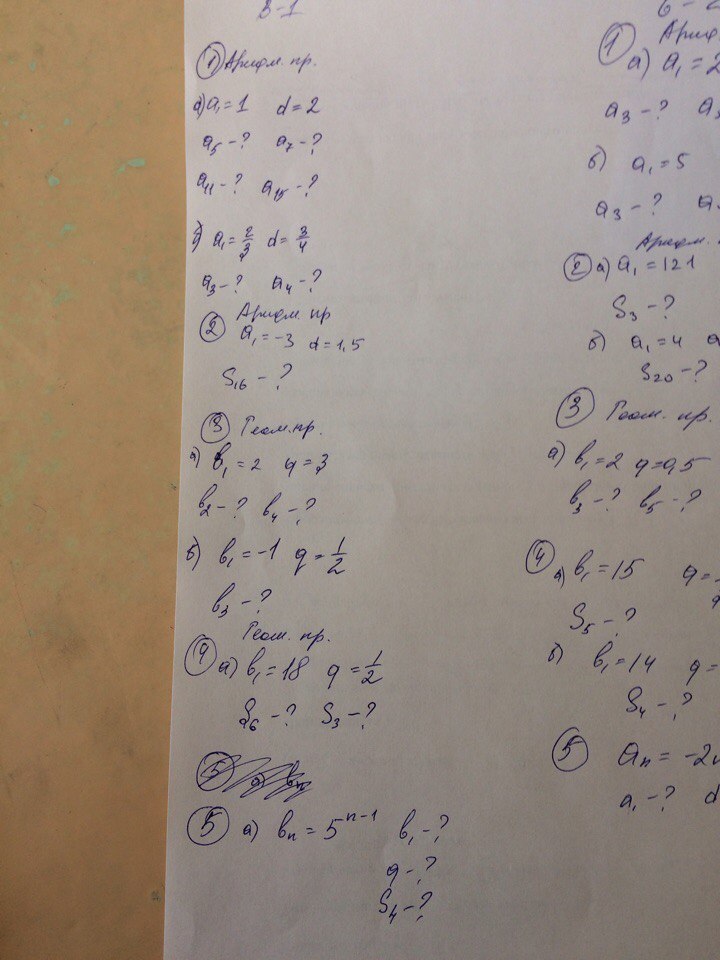 В-1
① Арифм. пр.
а) a₁ = 1 d = 2
a₅ - ? a₇ - ?
a₁₁ - ? a₁₅ - ?
б) a₁ = 2/3 d = 3/4
a₃ - ? a₄ - ?
② Арифм. пр
a₁ = -3 d = 1,5
S₁₆ - ?
③ Геом. пр.
а) b₁ = 2 q = 3
b₂ - ? b₄ - ?
б) b₁ = -1 q = 1/2
b₃ - ?
Геом. пр.
④ а) b₁ = 18 q = 1/2
S₆ - ? S₃ - ?
⑤ а) bₙ = 5ⁿ⁻¹ b₁ - ?
q - ?
S₄ - ?
① Ариф
а) a₁ = 2
a₃ - ? a
б) a₁ = 5
a₃ - ? a
Арифм.
② а) a₁ = 121
S₃ - ?
б) a₁ = 4 a
S₂₀ - ?
③ Геом. пр.
а) b₁ = 2 q = 0,5
b₃ - ? b₅ - ?
④ а) b₁ = 15 q =
S₅ - ?
б) b₁ = 14 q =
S₄ - ?
⑤ aₙ = -2n
a₁ - ? d